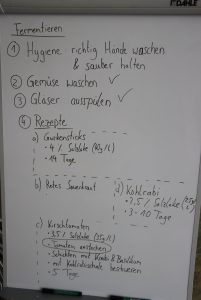 DAHLE
Fermentieren
① Hygiene richtig Hände waschen
& sauber halten
② Gemüse waschen ✓
③ Gläser ausspülen ✓
④ Rezepte
a) Gurkensticks
• 4 % Salzlake (40g/L)
• 14 Tage
b) Rotes Sauerkraut
d) Kohlrabi
• 2,5 % Salzlake
• 3-10 Tage
c) Kirschtomaten
• 3,5 % Salzlake (35g/L)
• Tomaten einstechen
• schichten mit Knobi & Basilikum
• mit beschweren
• 5 Tage